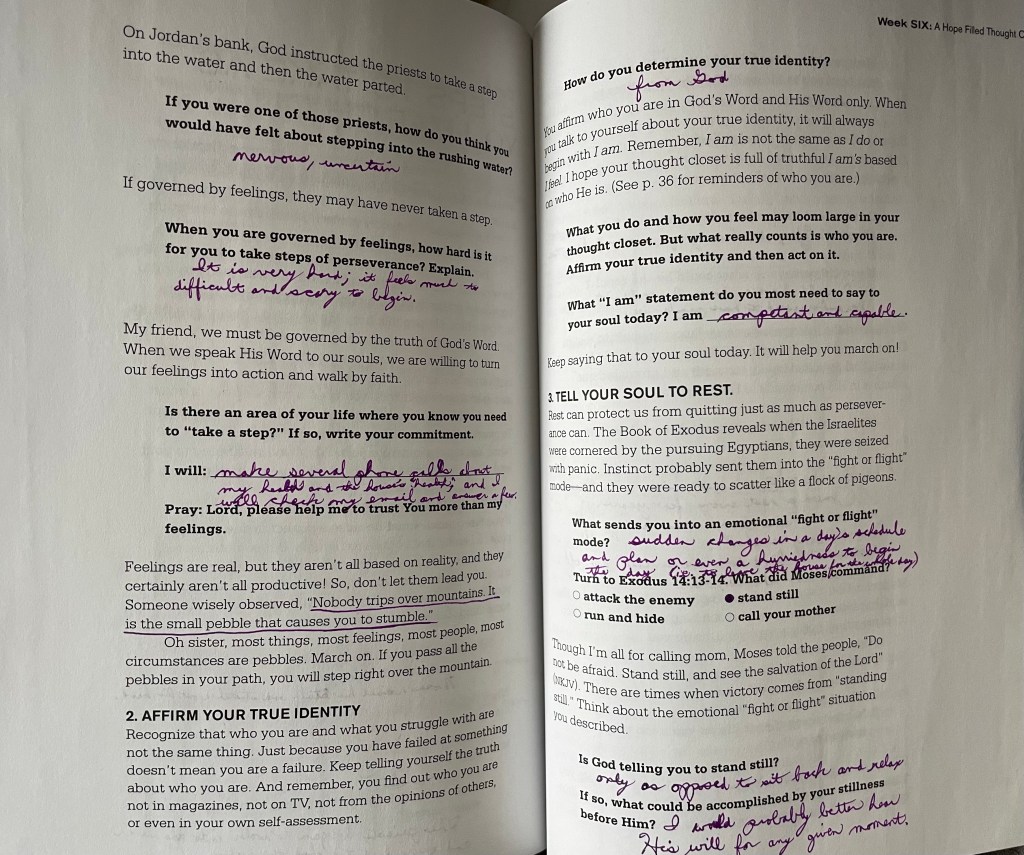 On Jordan's bank, God instructed the priests to take a step
into the water and then the water parted.
If you were one of those priests, how do you think you
would have felt about stepping into the rushing water?
nervous, uncertain
If governed by feelings, they may have never taken a step.
When you are governed by feelings, how hard is it
for you to take steps of perseverance? Explain.
It is very hard; it feels much to
difficult and scary to begin.
My friend, we must be governed by the truth of God's Word.
When we speak His Word to our souls, we are willing to turn
our feelings into action and walk by faith.
Is there an area of your life where you know you need
to "take a step?" If so, write your commitment.
I will: make several phone calls about
my health and the house's health; and I
will check my email and answer a few.
Pray: Lord, please help me to trust You more than my
feelings.
Feelings are real, but they aren't all based on reality, and they
certainly aren't all productive! So, don't let them lead you.
Someone wisely observed, "Nobody trips over mountains. It
is the small pebble that causes you to stumble."
Oh sister, most things, most feelings, most people, most
circumstances are pebbles. March on. If you pass all the
pebbles in your path, you will step right over the mountain.
2. AFFIRM YOUR TRUE IDENTITY
Recognize that who you are and what you struggle with are
not the same thing. Just because you have failed at something
doesn't mean you are a failure. Keep telling yourself the truth
about who you are. And remember, you find out who you are
not in magazines, not on TV, not from the opinions of others,
or even in your own self-assessment.
Week SIX: A Hope Filled Thought C
How do you determine your true identity?
from God
You affirm who you are in God's Word and His Word only. When
you talk to yourself about your true identity, it will always
begin with I am. Remember, I am is not the same as I do or
I feel. I hope your thought closet is full of truthful I am's based
on who He is. (See p. 36 for reminders of who you are.)
What you do and how you feel may loom large in your
thought closet. But what really counts is who you are.
Affirm your true identity and then act on it.
What "I am" statement do you most need to say to
your soul today? I am competant and capable.
Keep saying that to your soul today. It will help you march on!
3. TELL YOUR SOUL TO REST.
Rest can protect us from quitting just as much as persever-
ance can. The Book of Exodus reveals when the Israelites
were cornered by the pursuing Egyptians, they were seized
with panic. Instinct probably sent them into the "fight or flight"
mode—and they were ready to scatter like a flock of pigeons.
What sends you into an emotional "fight or flight"
mode? sudden changes in a day's schedule
and plan or even a hurriedness to begin
the day (ie. to leave the house for the whole day)
Turn to Exodus 14:13-14. What did Moses command?
attack the enemy stand still
run and hide call your mother
Though I'm all for calling mom, Moses told the people, "Do
not be afraid. Stand still, and see the salvation of the Lord"
(NKJV). There are times when victory comes from "standing
still." Think about the emotional "fight or flight" situation
you described.
Is God telling you to stand still?
only as opposed to sit back and relax
If so, what could be accomplished by your stillness
before Him? I would probably better hear
His will for any given moment.